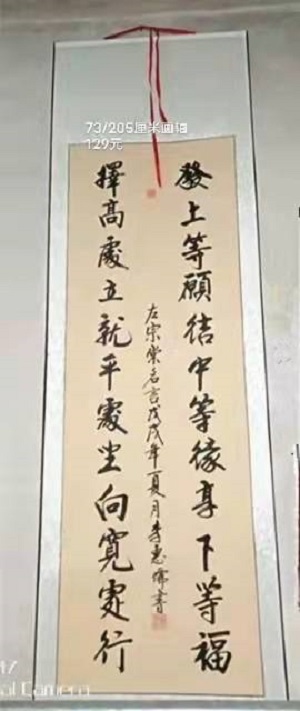 73/205厘米画轴
129元
發上等願结中等缘享下等福
左宗棠名言戊戌年夏月李惠書
擇高處立就平處坐向寬處行
al Camera